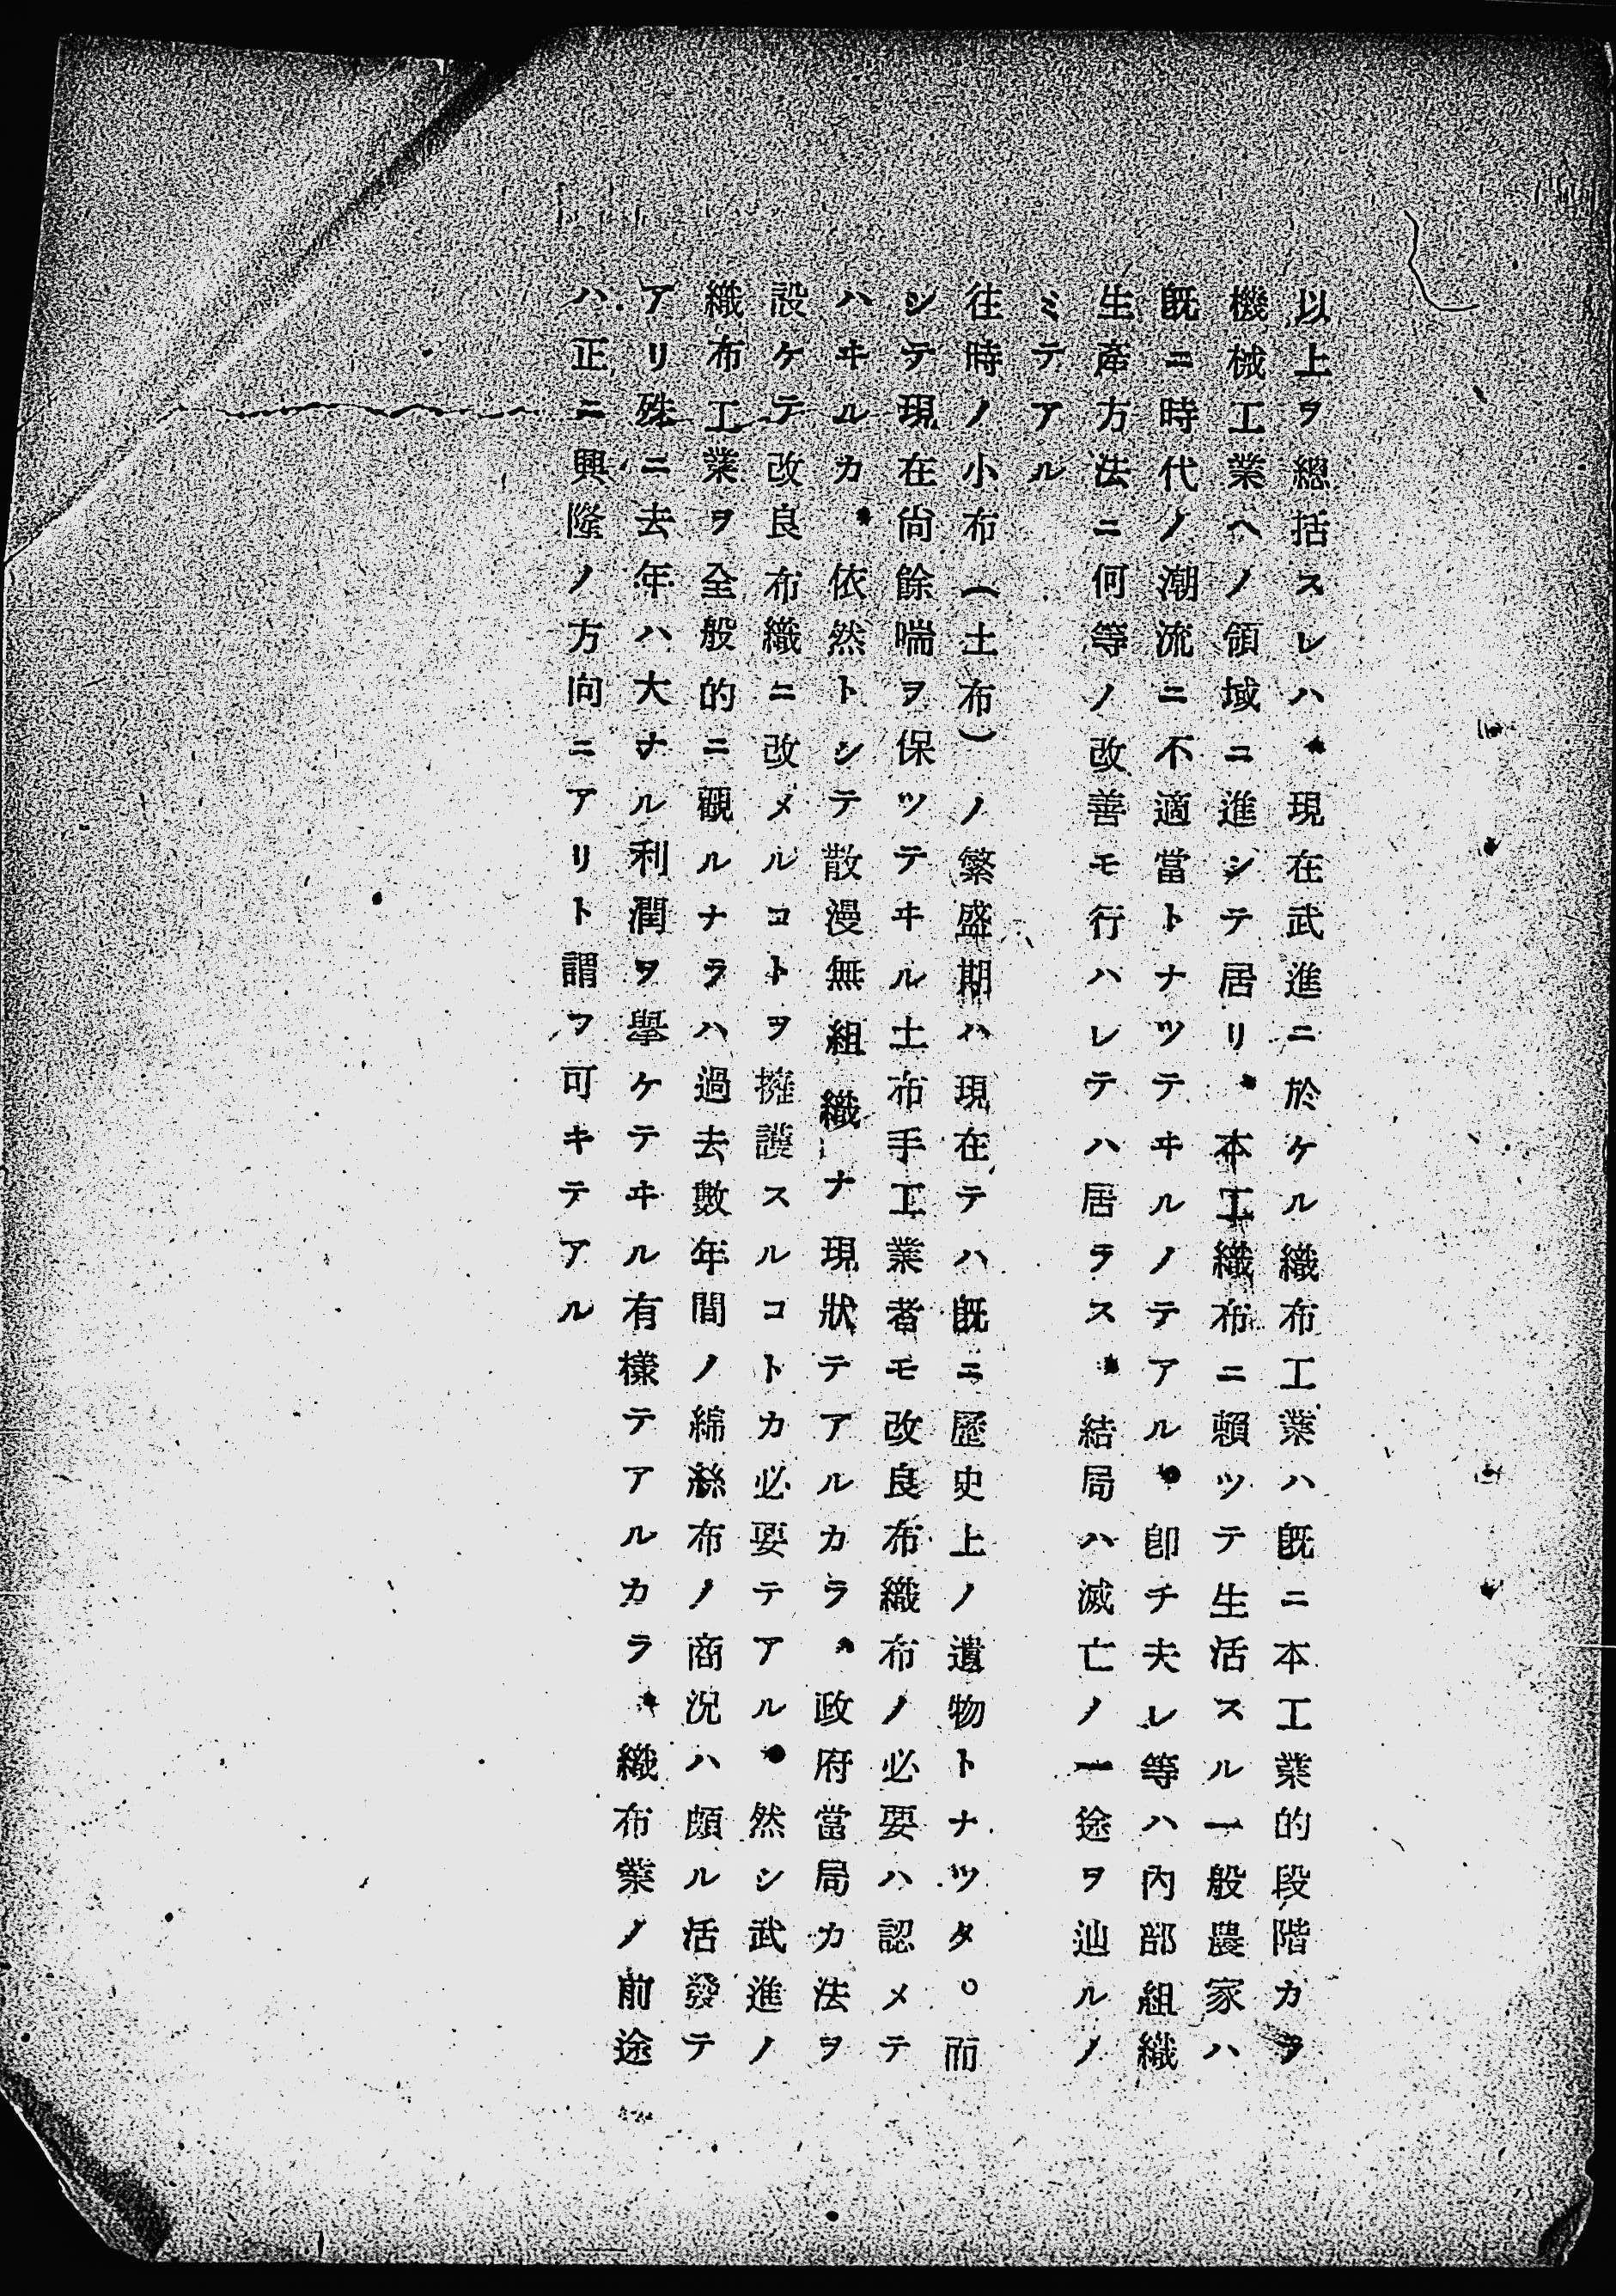 以上ヲ總括スレハ、現在武進ニ於ケル織布工業ハ既ニ本工業的段階カラ
機械工業ヘノ領域ニ進シテ居リ、本工織布ニ頼ツテ生活スル一般農家ハ
既ニ時代ノ潮流ニ不適當トナツテヰルノテアル、卽チ夫レ等ハ內部組織
生產方法ニ何等ノ改善モ行ハレテハ居ラス、結局ハ滅亡ノ一途ヲ辿ルノ
ミテアル
往時ノ小布(土布)ノ繁盛期ハ現在テハ既ニ歷史上ノ遺物トナツタ。而
シテ現在尙餘喘ヲ保ツテヰル土布手工業者モ改良布織布ノ必要ハ認メテ
ハヰルカ、依然トシテ散漫無組織ナ現狀テアルカラ、政府當局カ法ヲ
設ケテ改良布織ニ改メルコトヲ擁護スルコトカ必要テアル、然シ武進ノ
織布工業ヲ全般的ニ觀ルナラハ過去數年間ノ綿絲布ノ商況ハ頗ル活發テ
アリ殊ニ去年ハ大ナル利潤ヲ擧ケテヰル有樣テアルカラ、織布業ノ前途
ハ正ニ興隆ノ方向ニアリト謂フ可キテアル